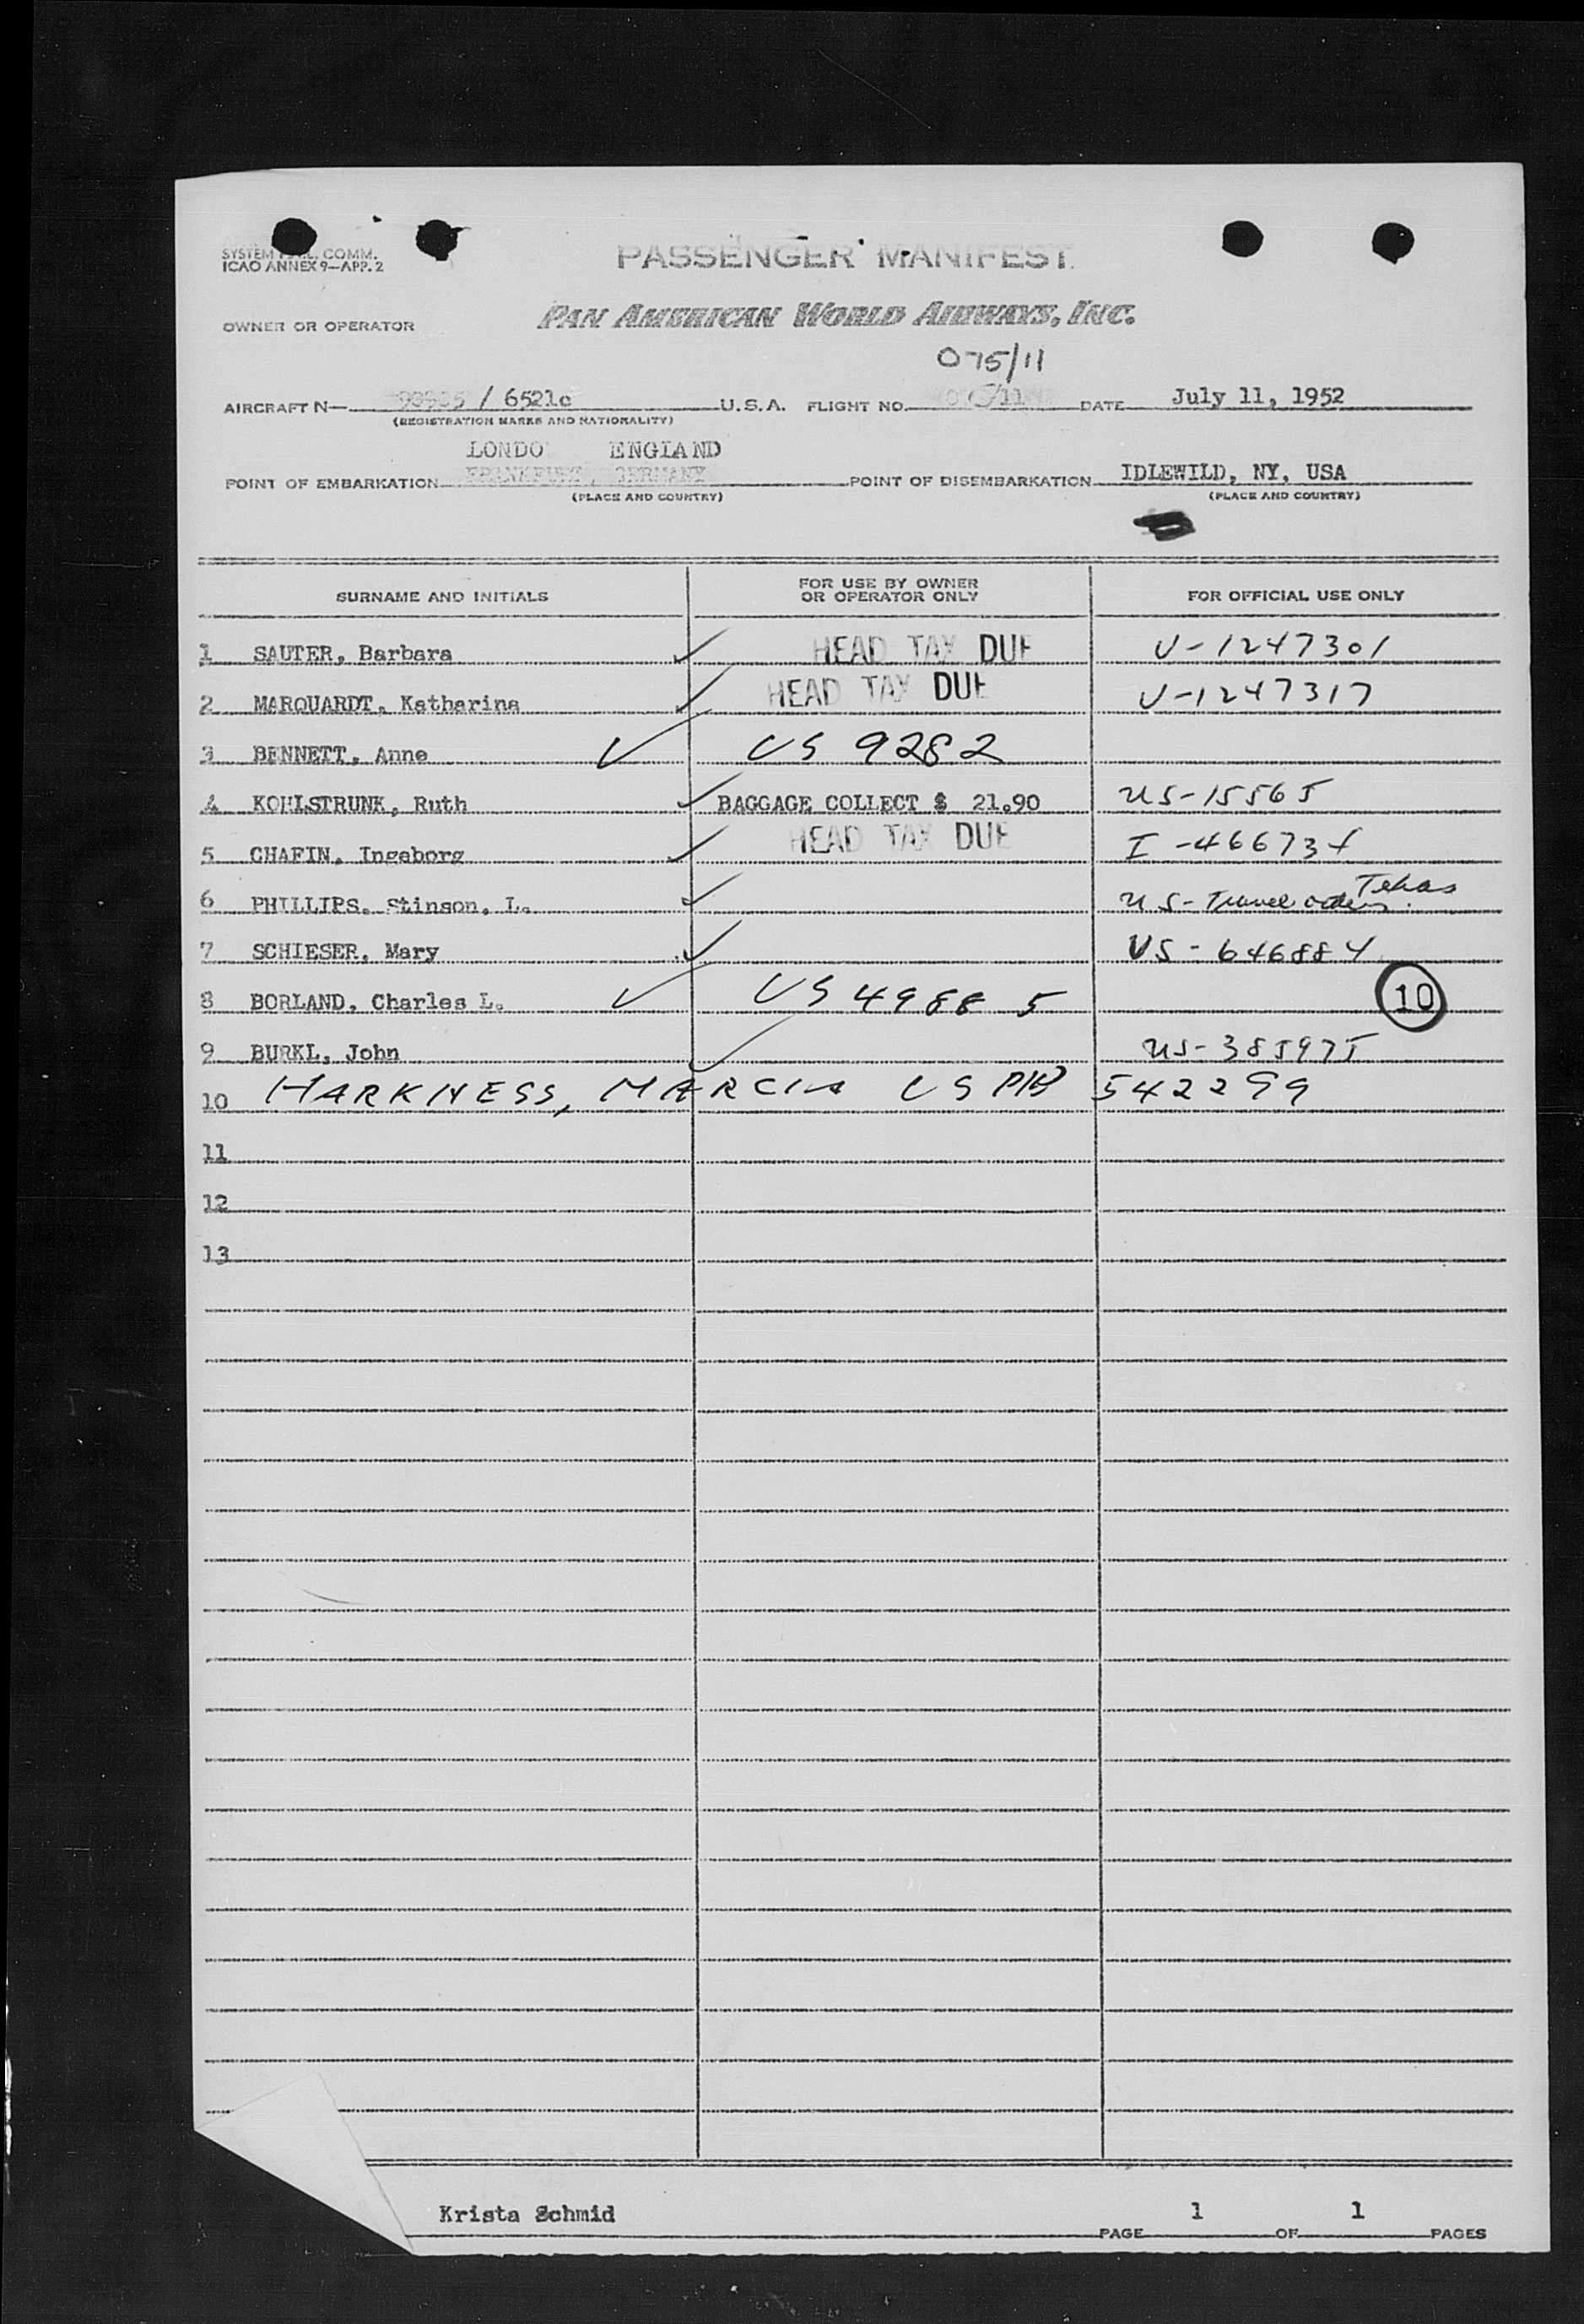 SYSTEM COMM.
ICAO ANNEX 9—APP. 2
PASSENGER MANIFEST
OWNER OR OPERATOR PAN AMERICAN WORLD AIRWAYS, INC.
075/11
AIRCRAFT N— / 6521c U.S.A. FLIGHT NO. DATE July 11, 1952
(REGISTRATION MARKS AND NATIONALITY)
LONDO ENGLAND
POINT OF EMBARKATION FRANKFURT, GERMANY POINT OF DISEMBARKATION IDLEWILD, NY, USA
(PLACE AND COUNTRY) (PLACE AND COUNTRY)
SURNAME AND INITIALS FOR USE BY OWNER OR OPERATOR ONLY FOR OFFICIAL USE ONLY
1 SAUTER, Barbara ✓ HEAD TAX DUE V-1247301
2 MARQUARDT, Katharina ✓ HEAD TAX DUE V-1247317
3 BENNETT, Anne ✓ US 9282
4 KOHLSTRUNK, Ruth ✓ BAGGAGE COLLECT $ 21.90 US-15565
5 CHAFIN, Ingeborg ✓ HEAD TAX DUE I-46673
6 PHILLIPS, Stinson, L. ✓ US- Travel orders. Texas
7 SCHIESER, Mary ✓ US-646884
8 BORLAND, Charles L. ✓ US 49885 10
9 BURKL, John ✓ US-385975
10 HARKNESS, MARCIA US PP 542299
11
12
13
Krista Schmid PAGE 1 OF 1 PAGES